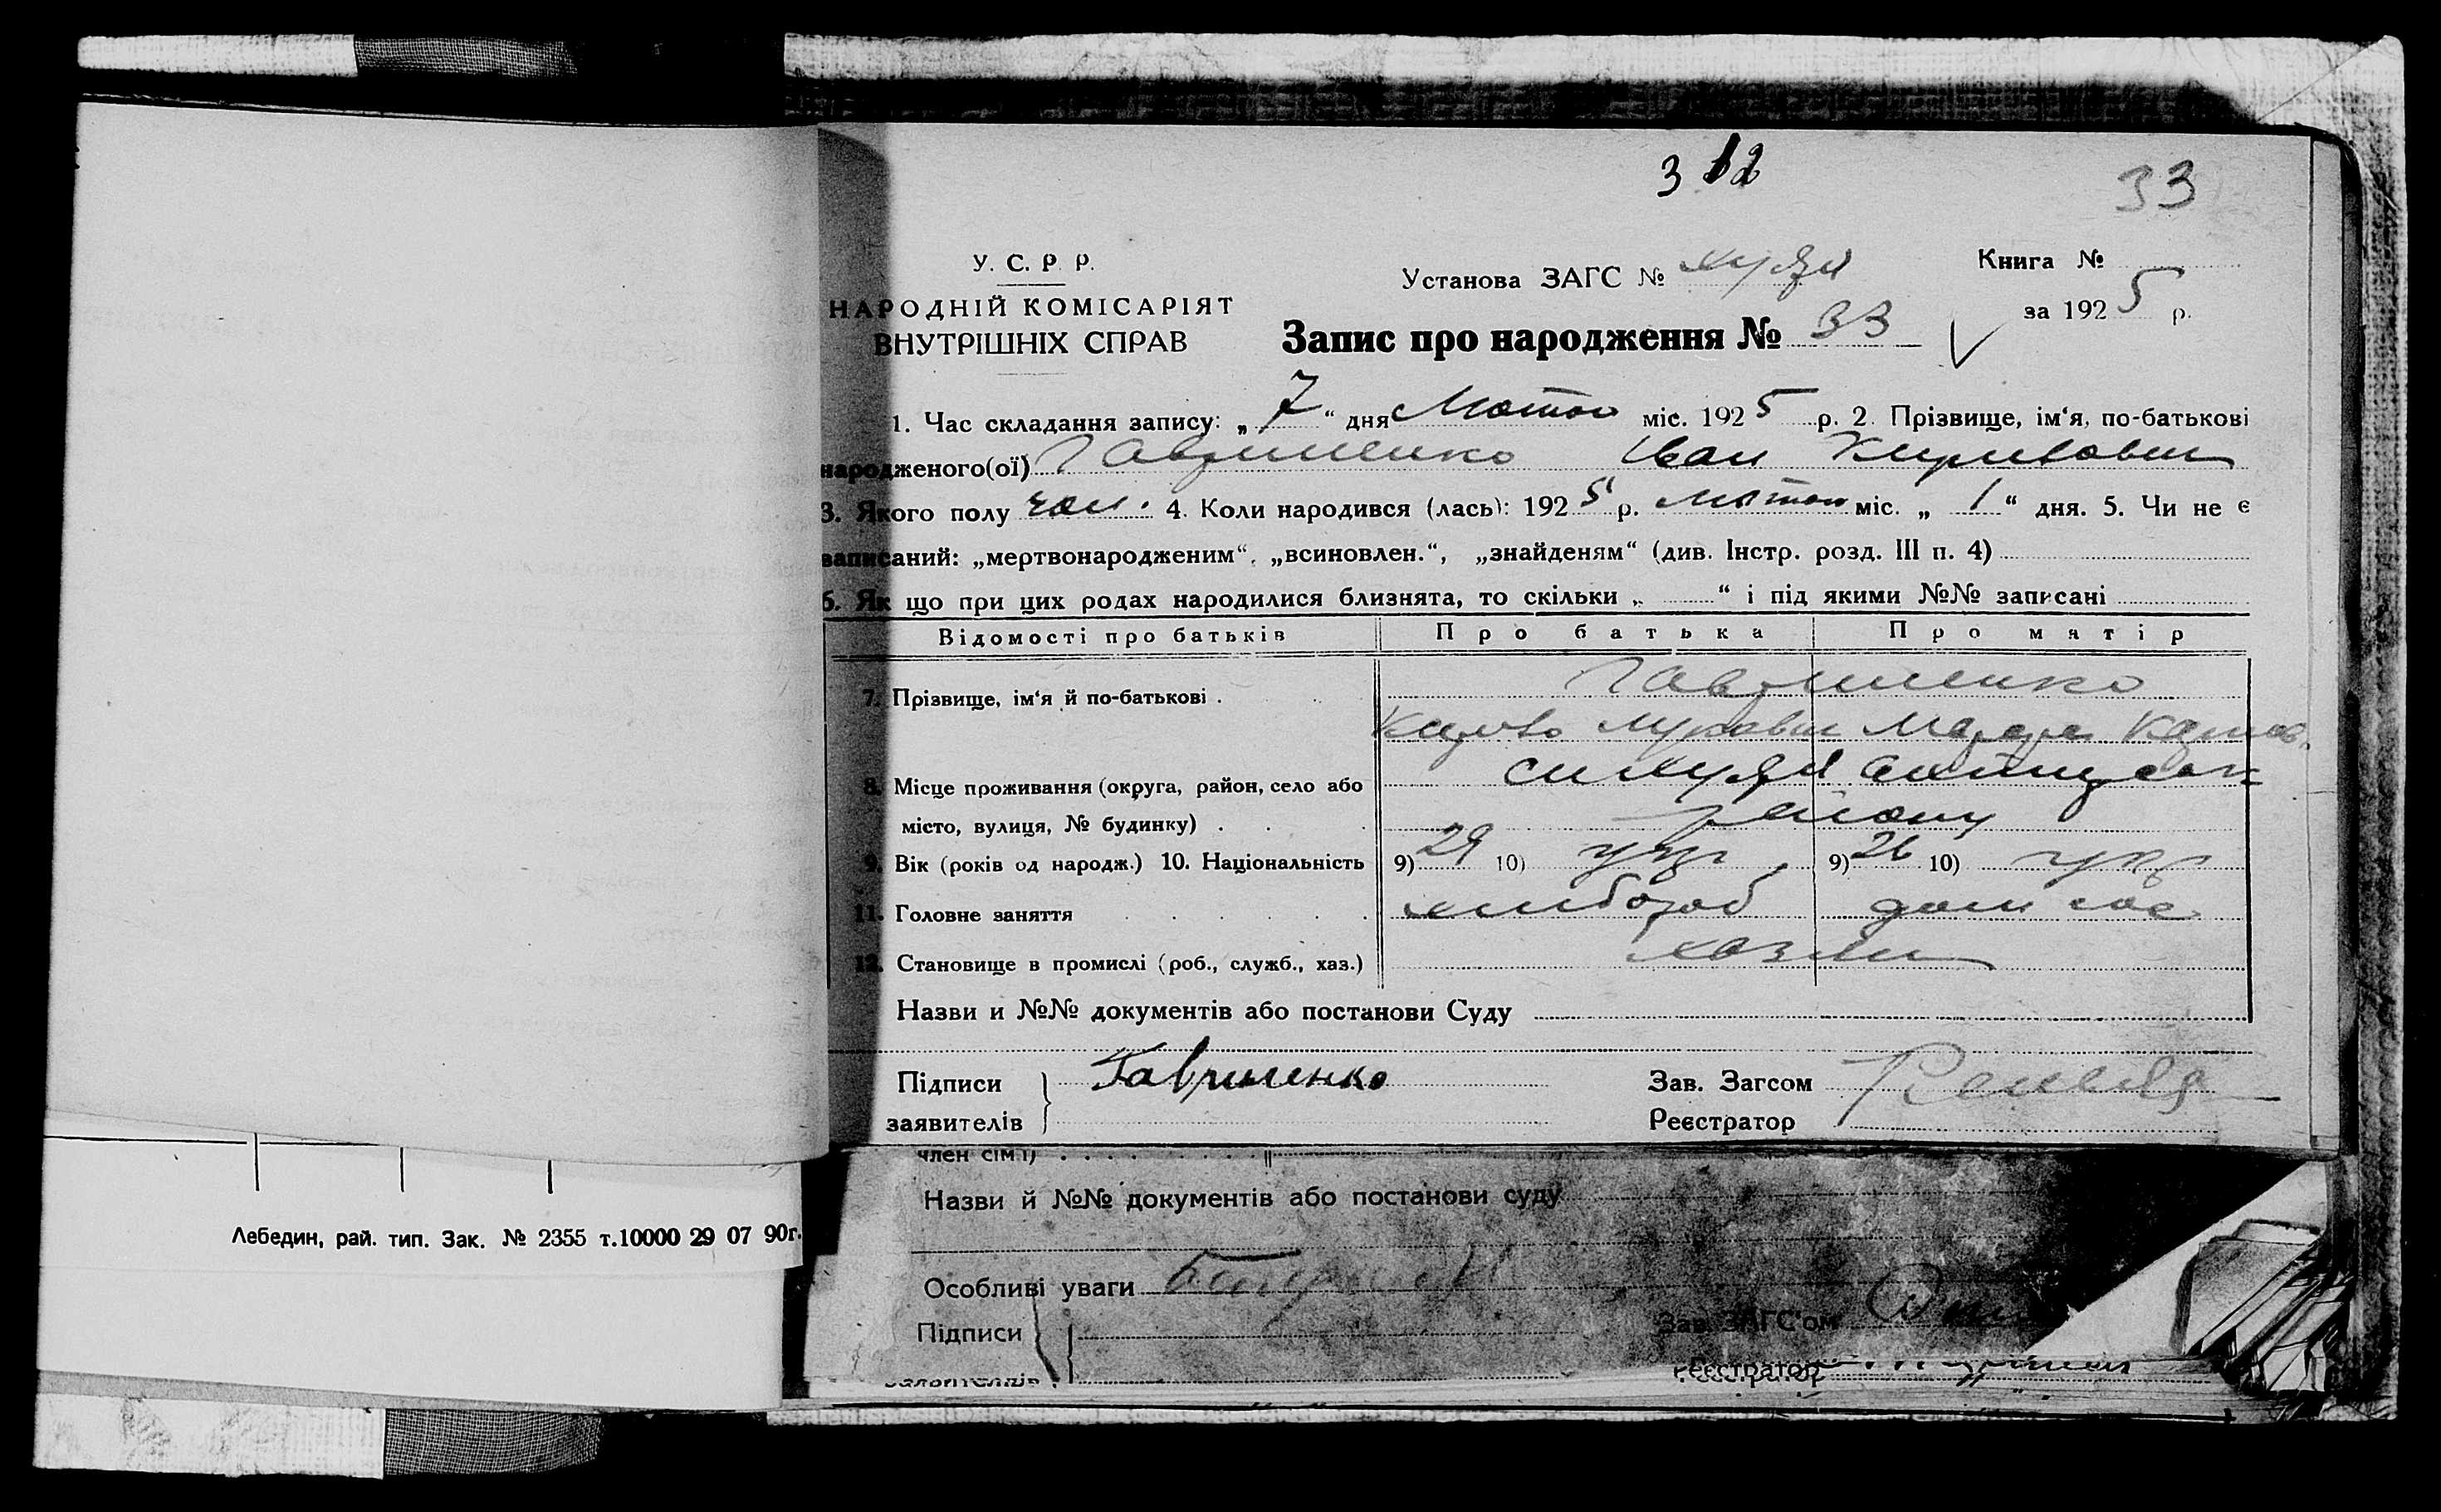 33
У. С. Р. Р.
НАРОДНІЙ КОМІСАРІЯТ
ВНУТРІШНІХ СПРАВ
Установа ЗАГС №
Книга №
за 1925 р.
Запис про народження № 33
1. Час складання запису: „7“ дня Лютою міс. 1925 р. 2. Прізвище, ім‘я, по-батькові
народженого(ої) Гавриленко Іван Кирилович
3. Якого полу чол. 4. Коли народився (лась): 1925 р. лютою міс. „1“ дня. 5. Чи не є
записаний: „мертвонародженим“, „всиновлен.“, „знайденям“ (див. Інстр. розд. III п. 4)
6. Як що при цих родах народилися близнята, то скільки „ “ і під якими №№ записані
Відомості про батьків Про батька Про матір
7. Прізвище, ім‘я й по-батькові . Гавриленко
Кирило Лукович
8. Місце проживання (округа, район, село або
місто, вулиця, № будинку) . . . району
9. Вік (років од народж.) 10. Національність 9) 29 10) укр. 9) 26 10) укр
11. Головне заняття . . . . . . хлибороб дом хоз
12. Становище в промислі (роб., служб., хаз.) хазяин
Назви и №№ документів або постанови Суду
Підписи Гавриленко Зав. Загсом
заявителів Реєстратор
член сім'ї) . . . . . . . . .
Лебедин, рай. тип. Зак. № 2355 т.10000 29 07 90г.
Назви й №№ документів або постанови суду
Особливі уваги
Підписи Зав. ЗАГС'ом
Реєстратор